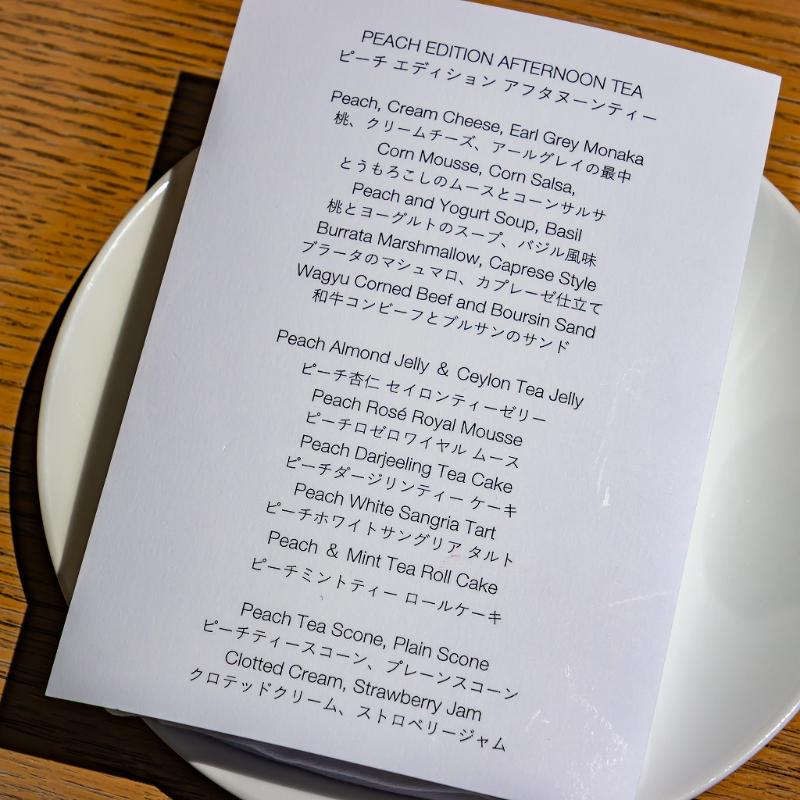 PEACH EDITION AFTERNOON TEA
ピーチ エディション アフタヌーンティー
Peach, Cream Cheese, Earl Grey Monaka
桃、クリームチーズ、アールグレイの最中
Corn Mousse, Corn Salsa,
とうもろこしのムースとコーンサルサ
Peach and Yogurt Soup, Basil
桃とヨーグルトのスープ、バジル風味
Burrata Marshmallow, Caprese Style
ブラータのマシュマロ、カプレーゼ仕立て
Wagyu Corned Beef and Boursin Sand
和牛コンビーフとブルサンのサンド
Peach Almond Jelly & Ceylon Tea Jelly
ピーチ杏仁 セイロンティーゼリー
Peach Rosé Royal Mousse
ピーチロゼロワイヤル ムース
Peach Darjeeling Tea Cake
ピーチダージリンティー ケーキ
Peach White Sangria Tart
ピーチホワイトサングリア タルト
Peach & Mint Tea Roll Cake
ピーチミントティー ロールケーキ
Peach Tea Scone, Plain Scone
ピーチティースコーン、プレーンスコーン
Clotted Cream, Strawberry Jam
クロテッドクリーム、ストロベリージャム